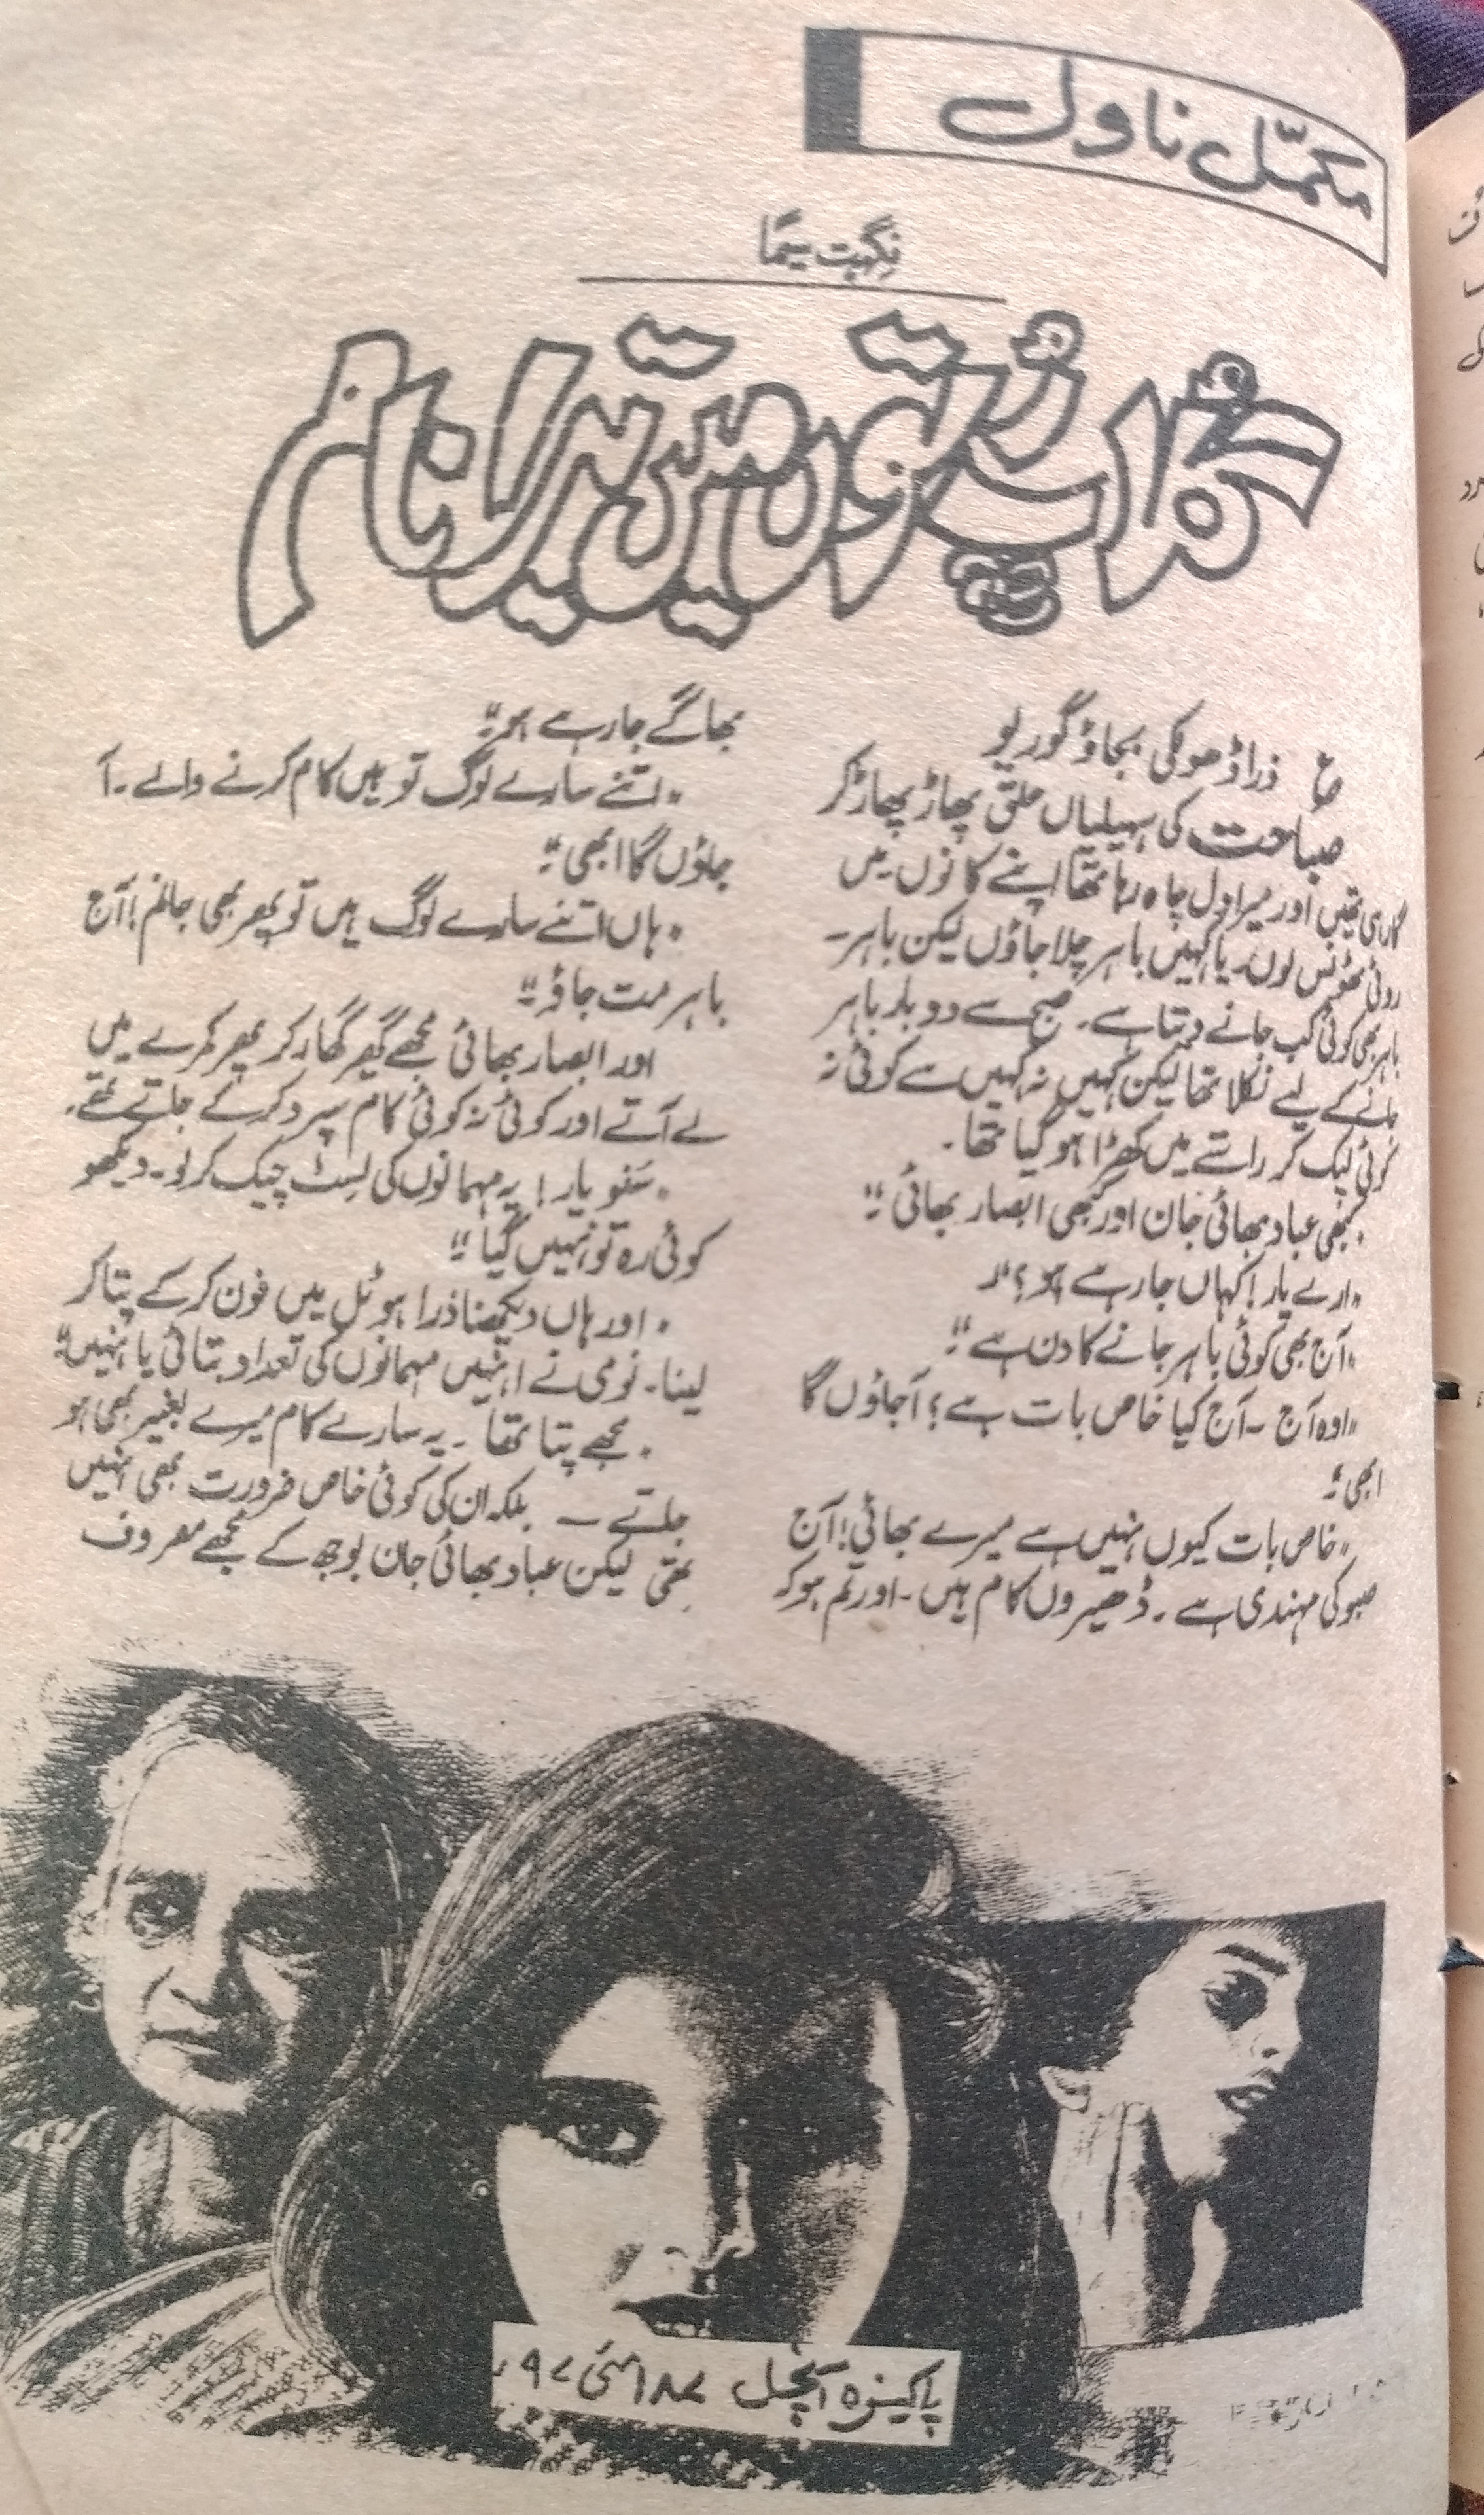 مکمّل ناول
نگہت سیما
گلاب رُتوں میں تیرا نام
ع ذرا ڈھولکی بجاؤ گوریو
صباحت کی سہیلیاں حلق پھاڑ پھاڑ کر
گا رہی تھیں اور میرا دل چاہ رہا تھا اپنے کانوں میں
روئی ٹھونس لوں۔ یا کہیں باہر چلا جاؤں لیکن باہر۔
باہر بھی کوئی کب جانے دیتا ہے۔ صبح سے دو بار باہر
جانے کے لیے نکلا تھا لیکن کہیں نہ کہیں سے کوئی نہ
کوئی لپک کر راستے میں کھڑا ہو گیا تھا۔
کبھی عباد بھائی جان اور کبھی ابصار بھائی"
"ارے یار! کہاں جا رہے ہو؟"
"آج بھی کوئی باہر جانے کا دن ہے"
"اوہ آج ۔ آج کیا خاص بات ہے؟ آجاؤں گا
ابھی"
"خاص بات کیوں نہیں ہے میرے بھائی! آج
صبو کی مہندی ہے۔ ڈھیروں کام ہیں۔ اور تم ہو کہ
بھاگے جا رہے ہو"
"اتنے سارے لوگ تو ہیں کام کرنے والے۔ آ
جاؤں گا ابھی"
"ہاں اتنے سارے لوگ ہیں تو پھر بھی جانم! آج
باہر مت جاؤ"
اور ابصار بھائی مجھے گھیر گھار کر پھر کمرے میں
لے آتے اور کوئی نہ کوئی کام سپرد کر کے چلے جاتے۔
"سنو یار! یہ مہمانوں کی لسٹ چیک کر لو۔ دیکھو
کوئی رہ تو نہیں گیا"
"اور ہاں دیکھنا ذرا ہوٹل میں فون کر کے پتا کر
لینا۔ نومی نے انہیں مہمانوں کی تعداد بتائی یا نہیں"
مجھے پتا تھا۔ یہ سارے کام میرے بغیر بھی ہو
جاتے ۔ بلکہ ان کی کوئی خاص ضرورت بھی نہیں
تھی لیکن عباد بھائی جان بوجھ کے مجھے مصروف
پاکیزہ آنچل ۱۸۷ مئی ۹۷ء